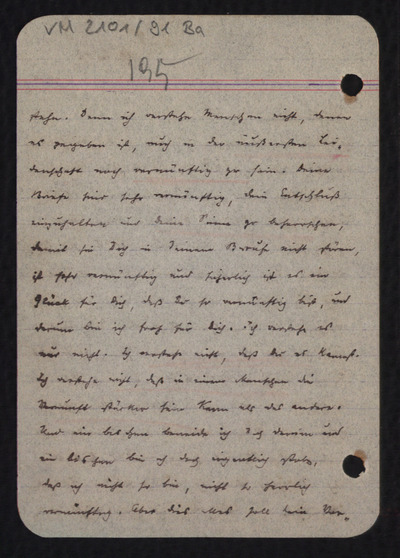 VM 2101/91 Ba
195
stehe. Denn ich verstehe Menschen nicht, denen
es gegeben ist, auch in der äußersten Lei-
denschaft noch vernünftig zu sein. Deine
Briefe sind sehr vernünftig, dein Entschluß
einzuhalten und deine Sinne zu beherrschen,
damit sie dich in deinem Berufe nicht stören,
ist sehr vernünftig und sicherlich ist es ein
Glück für dich, daß du so vernünftig bist, und
darum bin ich froh für dich. Ich verstehe es
nur nicht. Ich verstehe nicht, daß du es kannst.
Ich verstehe nicht, daß in einem Menschen die
Vernunft stärker sein kann als das andere.
Und ein bischen beneide ich dich darum und
ein bischen bin ich doch eigentlich stolz,
daß ich nicht so bin, nicht so herrlich
vernünftig. Aber dies alles soll kein Vor-